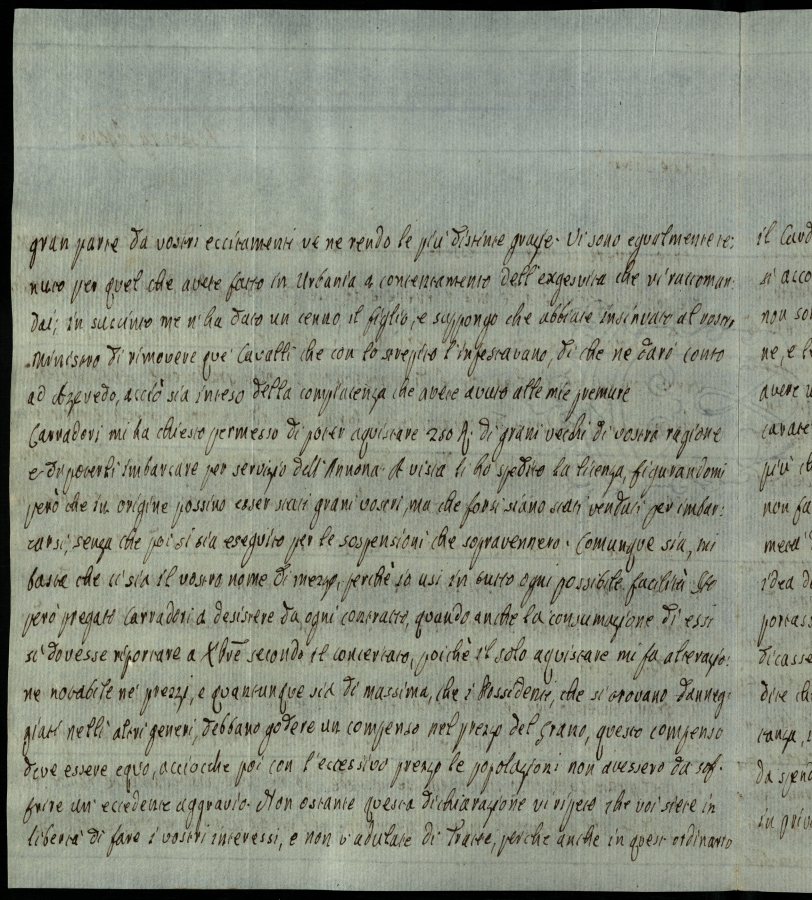 gran parte da vostri eccitamenti ve ne rendo le più distinte grazie. Vi sono egualmente te:
nuto per quel che avete fatto in Urbania a contentamento dell'exgesuita che vi raccoman:
dai; in succinto me n'ha dato un cenno il figlio, e suppongo che abbiate insinuato al vostro
ministro di rimovere que' Cavalli che con lo strepito l'infestavano, di che ne darò conto
ad Azevedo, acciò sia inteso della compiacenza che avete avuto alle mie premure
Carradori mi ha chiesto permesso di poter aquistare 250 di grani vecchi di vostra ragione
e di poterli imbarcare per servizio dell'Annona. A vista li ho spedito la licenza, figurandomi
però che in origine possino esser stati grani vostri, ma che forsi siano stati venduti per imbar:
carsi, senza che poi si sia eseguito per le sospensioni che sopravennero. Comunque sia, mi
basta che ci sia il vostro nome di mezzo, perchè io usi in tutto ogni possibile facilità. Ho
però pregato Carradori a desistere da ogni contratto, quando anche la consumazione di essi
si dovesse riportare a Xbre secondo il concertato, poichè il solo aquistare mi fa alterazio:
ne notabile ne' prezzi, e quantunque sia di massima, che i Possidenti, che si trovano danneg:
giati nelli altri generi, debbano godere un compenso nel prezzo del grano, questo compenso
deve essere equo, acciocche poi con l'eccessivo prezzo le popolazioni non avessero da sof:
frire un' eccedente aggravio. Non ostante questa dichiarazione vi ripeto che voi siete in
libertà di fare i vostri interessi, e non di Tratte, perche anche in quest ordinario
il Card
si acco
non so
ne, e l
avere
più ch
non fa
idea d
portass
dicasse
dite ch
da spend
in priv